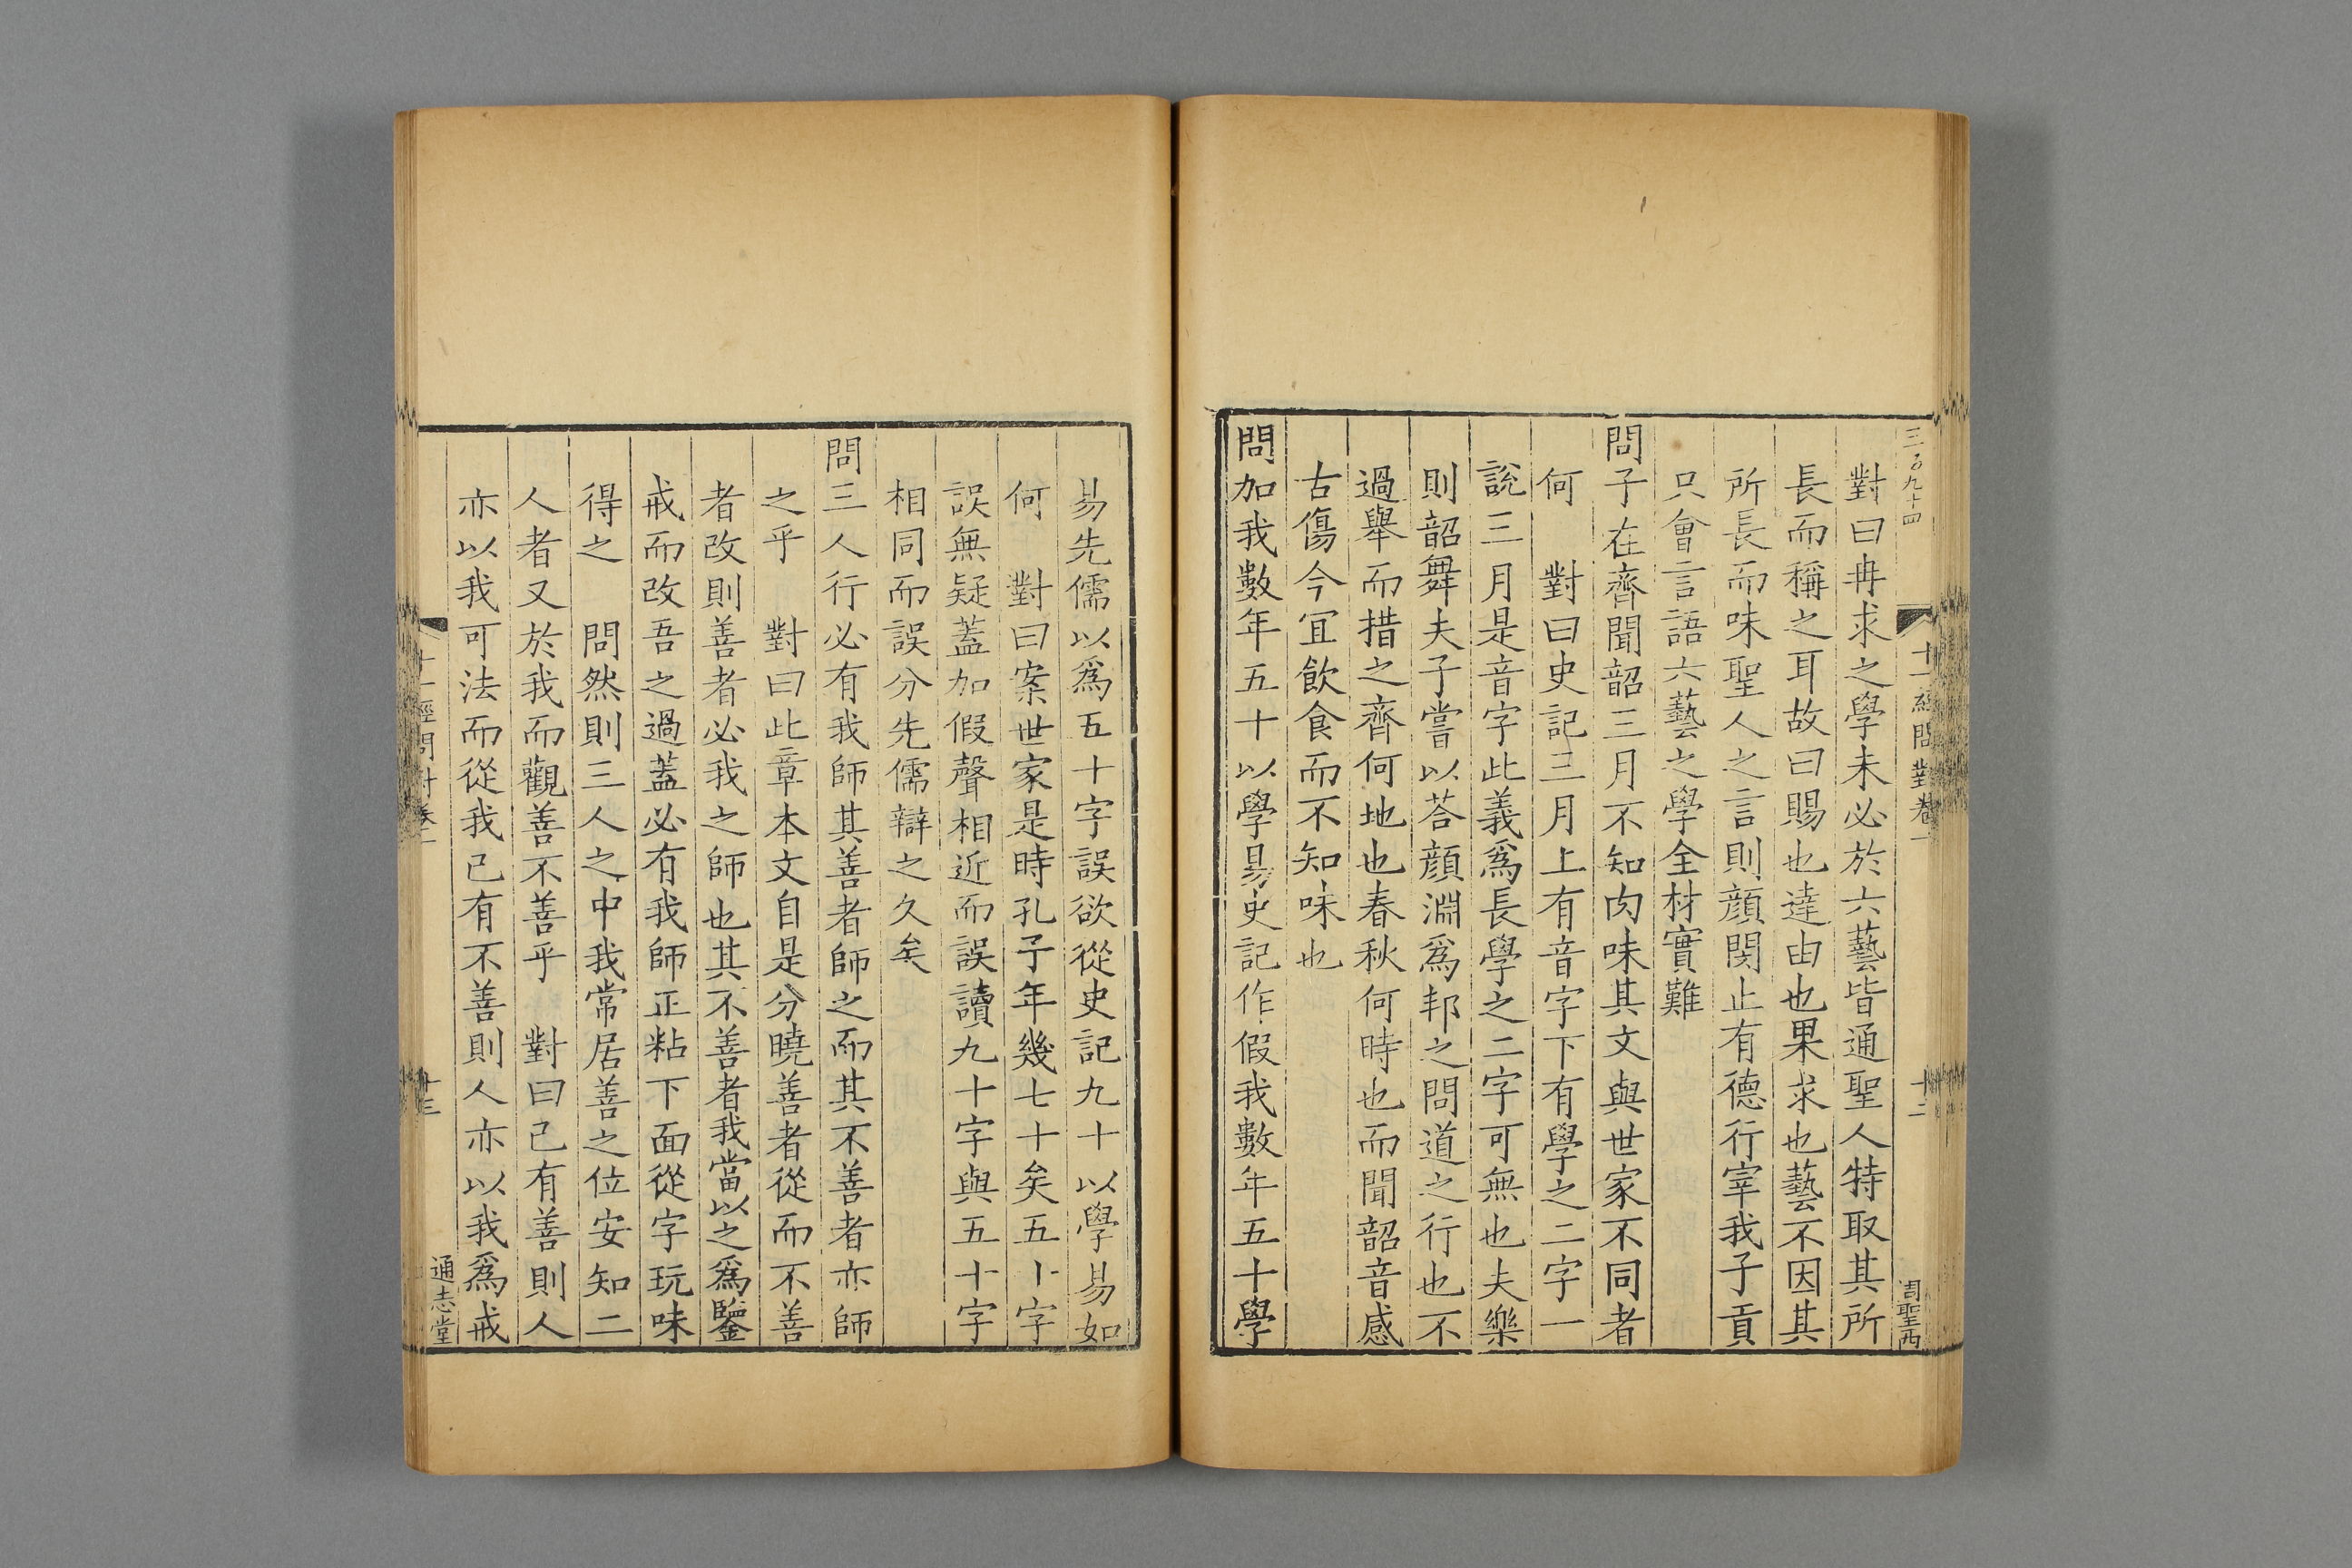 三百九十四
十一經問對卷一
十二
周聖西
對曰冉求之學未必於六藝皆通聖人特取其所
長而稱之耳故曰賜也達由也果求也藝不因其
所長而味聖人之言則顔閔止有德行宰我子貢
只會言語六藝之學全材實難
問子在齊聞韶三月不知肉味其文與世家不同者
何　對曰史記三月上有音字下有學之二字一
說三月是音字此義爲長學之二字可無也夫樂
則韶舞夫子嘗以荅顔淵爲邦之問道之行也不
過舉而措之齊何地也春秋何時也而聞韶音感
古傷今宜飲食而不知味也
問加我數年五十以學易史記作假我數年五十學
易先儒以爲五十字誤欲從史記九十以學易如
何　對曰案世家是時孔子年幾七十矣五十字
誤無疑蓋加假聲相近而誤讀九十字與五十字
相同而誤分先儒辯之久矣
問三人行必有我師其善者師之而其不善者亦師
之乎　對曰此章本文自是分曉善者從而不善
者改則善者必我之師也其不善者我當以之爲鑒
戒而改吾之過蓋必有我師正粘下面從字玩味
得之　問然則三人之中我常居善之位安知二
人者又於我而觀善不善乎　對曰己有善則人
亦以我可法而從我己有不善則人亦以我爲戒
十一經問對卷一
十三
通志堂